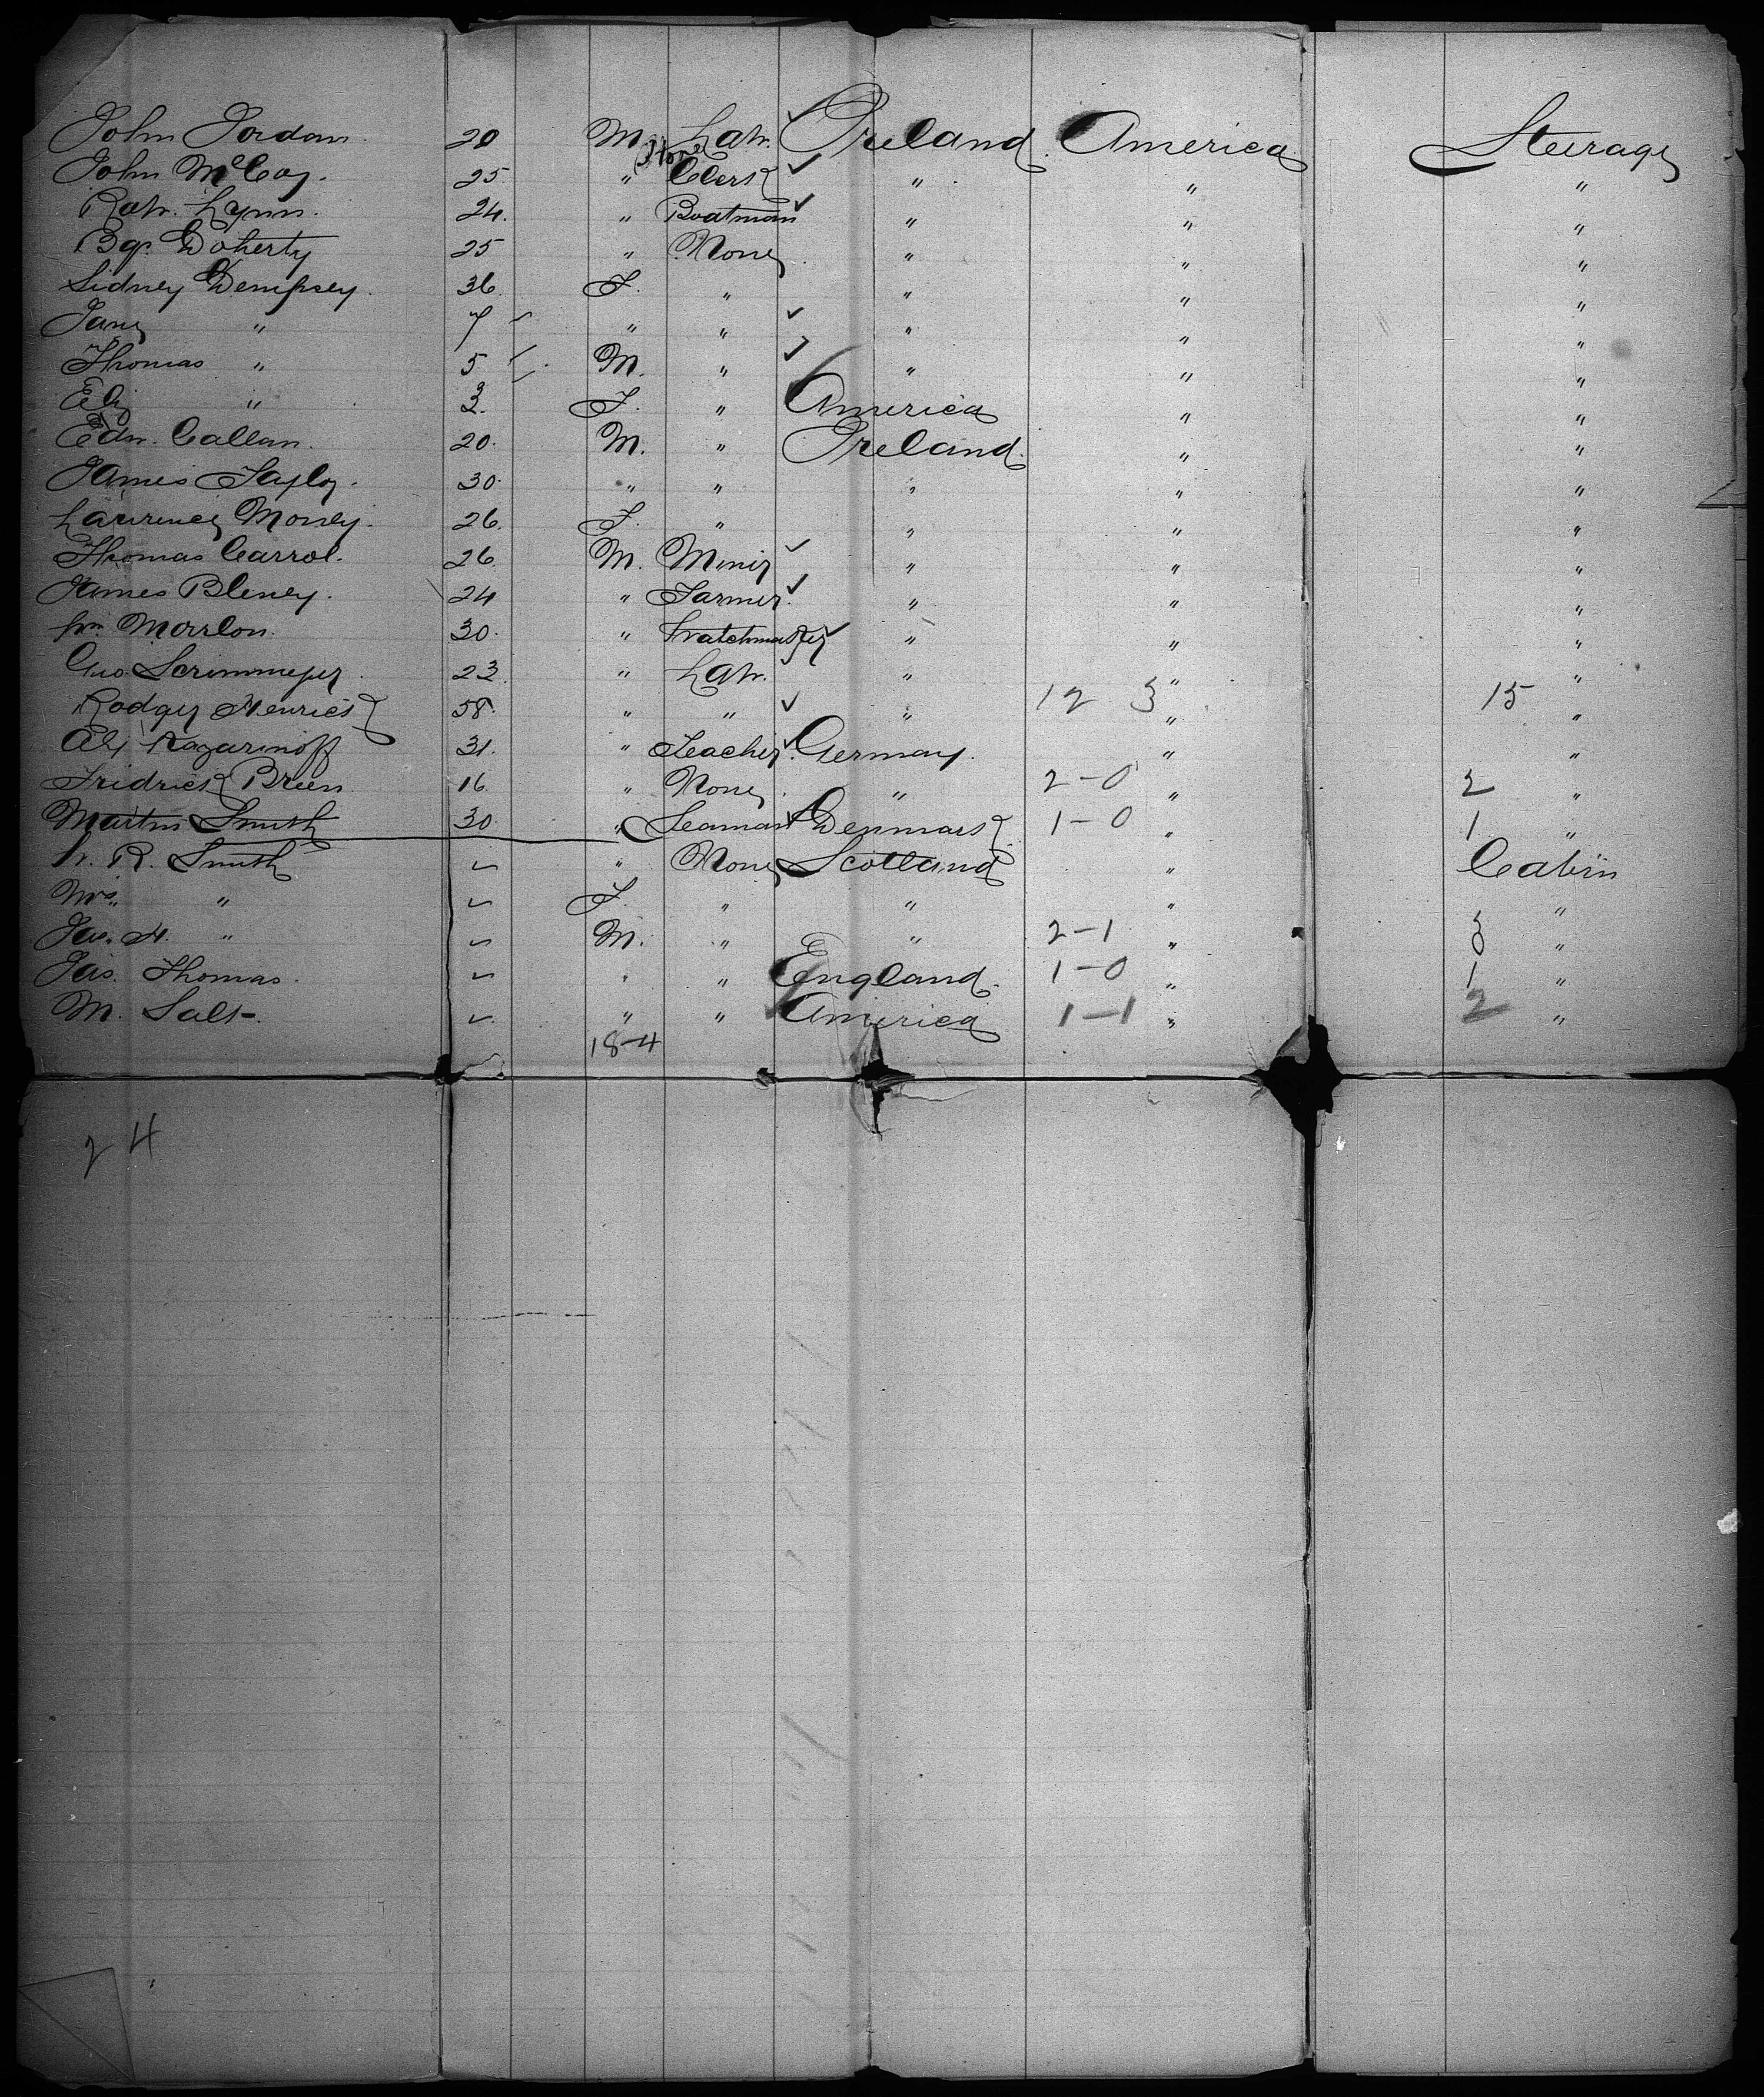 John Jordan. 20 M. Lab. Ireland America Steerage
John McCoy. 25 " (Stone) Clerk " " "
Rob. Lynn. 24. " Boatman " " "
Doherty 25 " None " " "
Sidney Dempsey. 36 F. " " " "
Jane " 7 " " " " "
Thomas " 5 M. " " " "
Eliz " 3. F. " America " "
Edw. Callan. 20. M. " Ireland. " "
James Taylor. 30. " " " " "
Laurence Money. 26. F. " " " "
Thomas Carrol. 26. M. Miner " " "
James Bleney. 24 " Farmer. " " "
Wm. Marlon. 30. " Watchmaker " " "
Geo. Scrimmeger 23. " Lab. " " "
Rodger Henrick 58. " " " 12 3 " 15 "
Alex Kazarinoff 31. " Teacher. Germany. " "
Fridrick Breen 16. " None " 2-0 " 2 "
Martin Smith 30. " Seaman Denmark 1-0 " 1 "
W. R. Smith " None Scotland " Cabin
Mrs. " F. " " " "
Jas. H. " M. " " 2-1 " 3 "
Jas. Thomas. " " England. 1-0 " 1 "
M. Salt. " " America 1-1 " 2 "
18-4
24